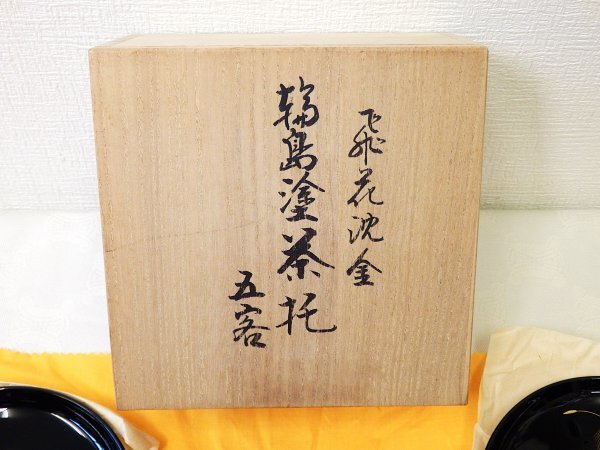 飛花沈金
輪島塗茶托
五客